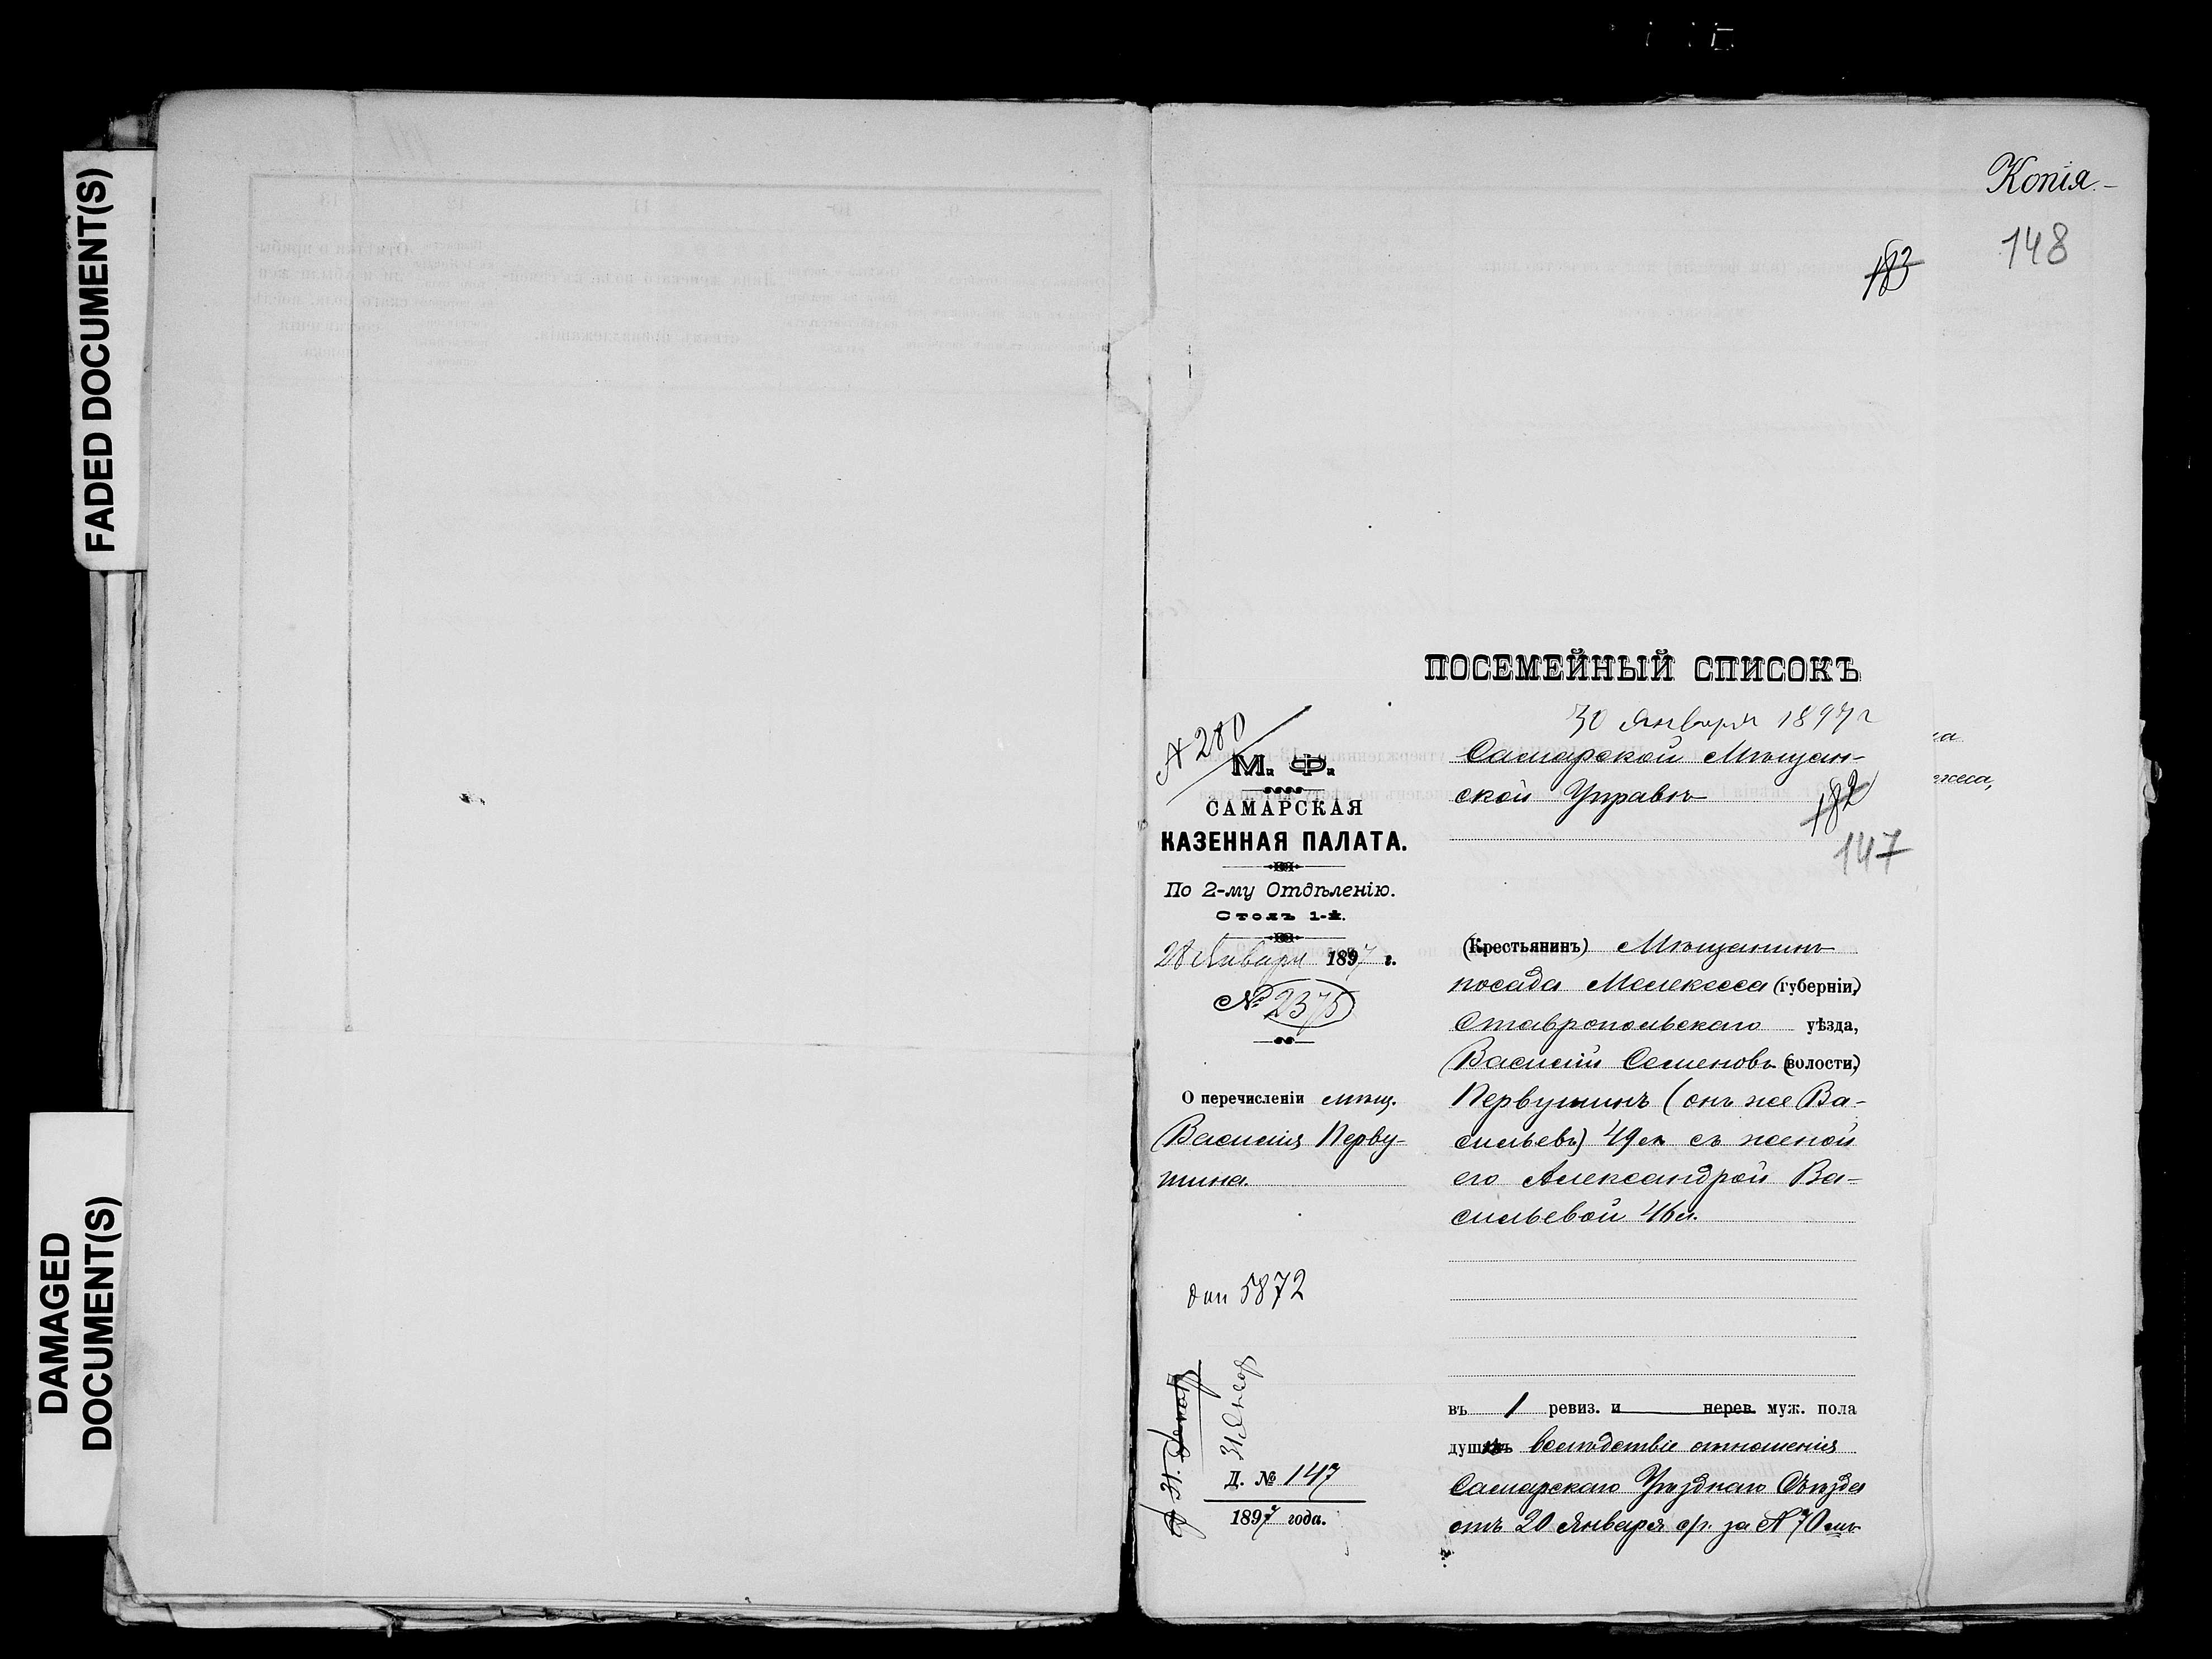 FADED DOCUMENT(S)
DAMAGED
DOCUMENT(S)
Копія.-
148
183
ПОСЕМЕЙНЫЙ СПИСОКЪ
30 Января 1897 г
№ 280
М. Ф.
САМАРСКАЯ
КАЗЕННАЯ ПАЛАТА.
По 2-му Отдѣленію.
Столъ 1-й.
28 Января 1897 г.
№ 2375
О перечисленіи мѣщ.
Василія Перву-
шина.
5872
31 Январ
Д. № 147
1897 года.
Самарской Мѣщан-
ской Управѣ
182
147
(Крестьянинъ) Мѣщанинъ
посада Мелекесса (губерніи,)
Ставропольскаго уѣзда,
Василій Семеновъ (волости,)
Первушинъ (онъ же Ва-
сильевъ) 49 л. съ женой
его Александрой Ва-
сильевой 46 л.
въ 1 ревиз. и нерев. муж. пола
душ вслѣдствіе отношенія
Самарскаго Уѣзднаго Съѣзда
отъ 20 Января с/г. за № 70